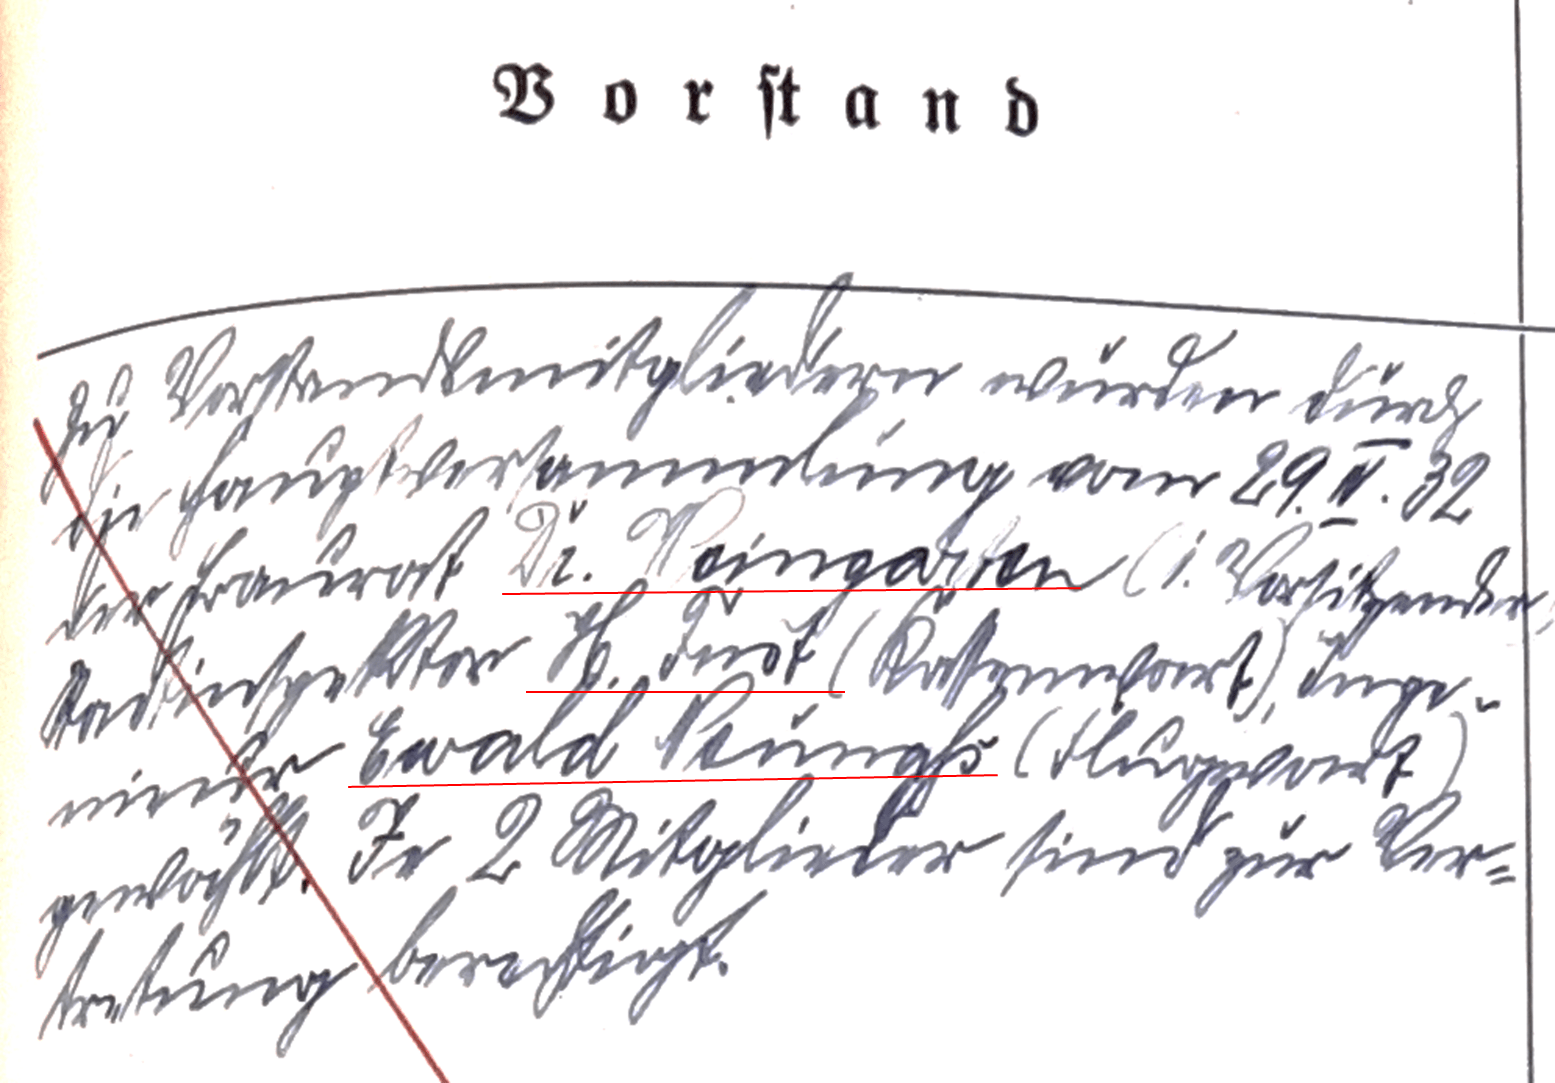 Vorstand
Zu Vorstandsmitgliedern wurden durch
die Hauptversammlung vom 29. II. 32
der Baurat Dr. Weingarten (1. Vorsitzender),
Stadtinspektor H. Just (Kassenwart), Inge-
nieur Ewald (Flugwart)
gewählt. Je 2 Mitglieder sind zur Ver-
tretung berechtigt.